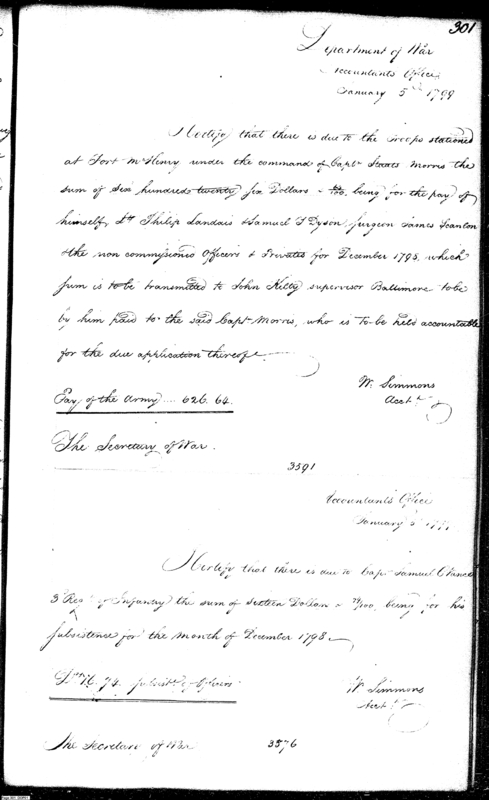 301
Department of War
Accountants Office
January 5th 1799
I Certify that there is due to the Troops stationed
at Fort McHenry under the command of Capt Staats Morris the
sum of Six hundred twenty six Dollars & 64/100. being for the pay of
himself, Lts Philip Landais & Samuel T Dyson, Surgeon James Scanlon
& the non commissioned Officers & Privates for December 1798, which
sum is to be transmitted to John Kilty supervisor Baltimore to be
by him paid to the said Capt Morris, who is to be held accountable
for the due application thereof
Wm Simmons
Acct
Pay of the Army .... 626.64.
The Secretary of War.
3591
Accountants Office
January 5
I Certify that there is due to Capt Samuel C Vance
3 Regt of Infantry the sum of sixteen Dollars & 74/100, being for his
subsistence for the month of December 1798
16.74. subsistce of Officers
Wm Simmons
Acct
The Secretary of War
3576